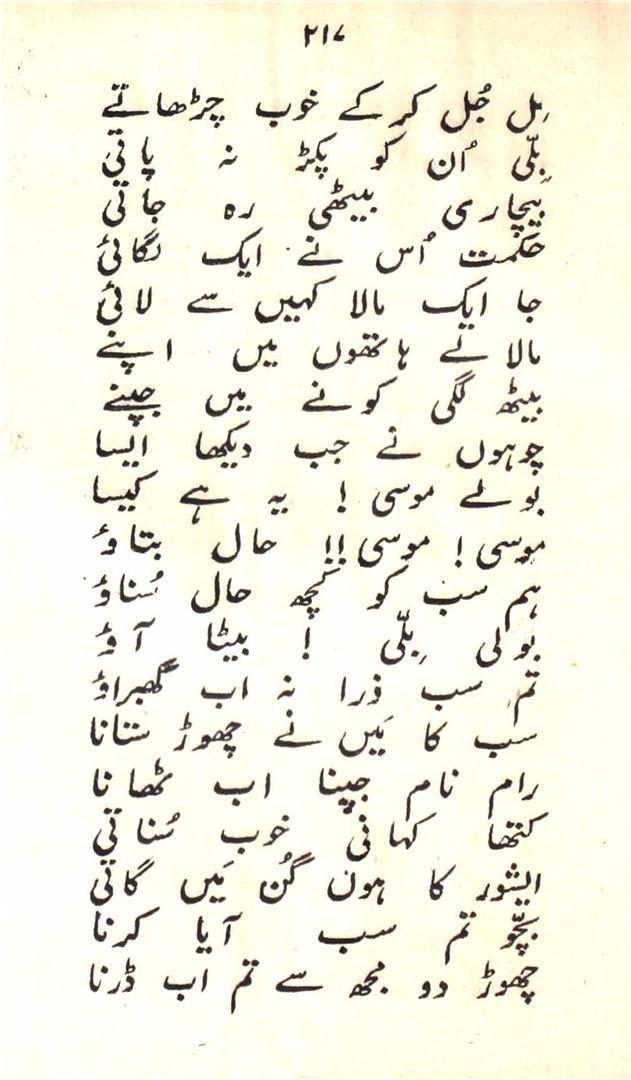 ۲۱۷
مِل جُل کر کے خوب چڑھاتے
بِلّی اُن کو پکڑ نہ پاتی
بیچاری بیٹھی رہ جاتی
حکمت اُس نے ایک لگائی
جا ایک مالا کہیں سے لائی
مالا لے ہاتھوں میں اپنے
بیٹھ لگی کونے میں جپنے
چوہوں نے جب دیکھا ایسا
بولے موسی ! یہ ہے کیسا
موسی ! موسی !! حال بتاؤ
ہم سب کو کُچھ حال سُناؤ
بولی بِلّی ! بیٹا آؤ
تم سب ذرا نہ اب گھبراؤ
سب کا مَیں نے چھوڑ ستانا
رام نام جپنا اب ٹھانا
کتھا کہانی خوب سُناتی
ایشور کا ہوں گُن مَیں گاتی
بچّو تم سب آیا کرنا
چھوڑ دو مجھ سے تم اب ڈرنا